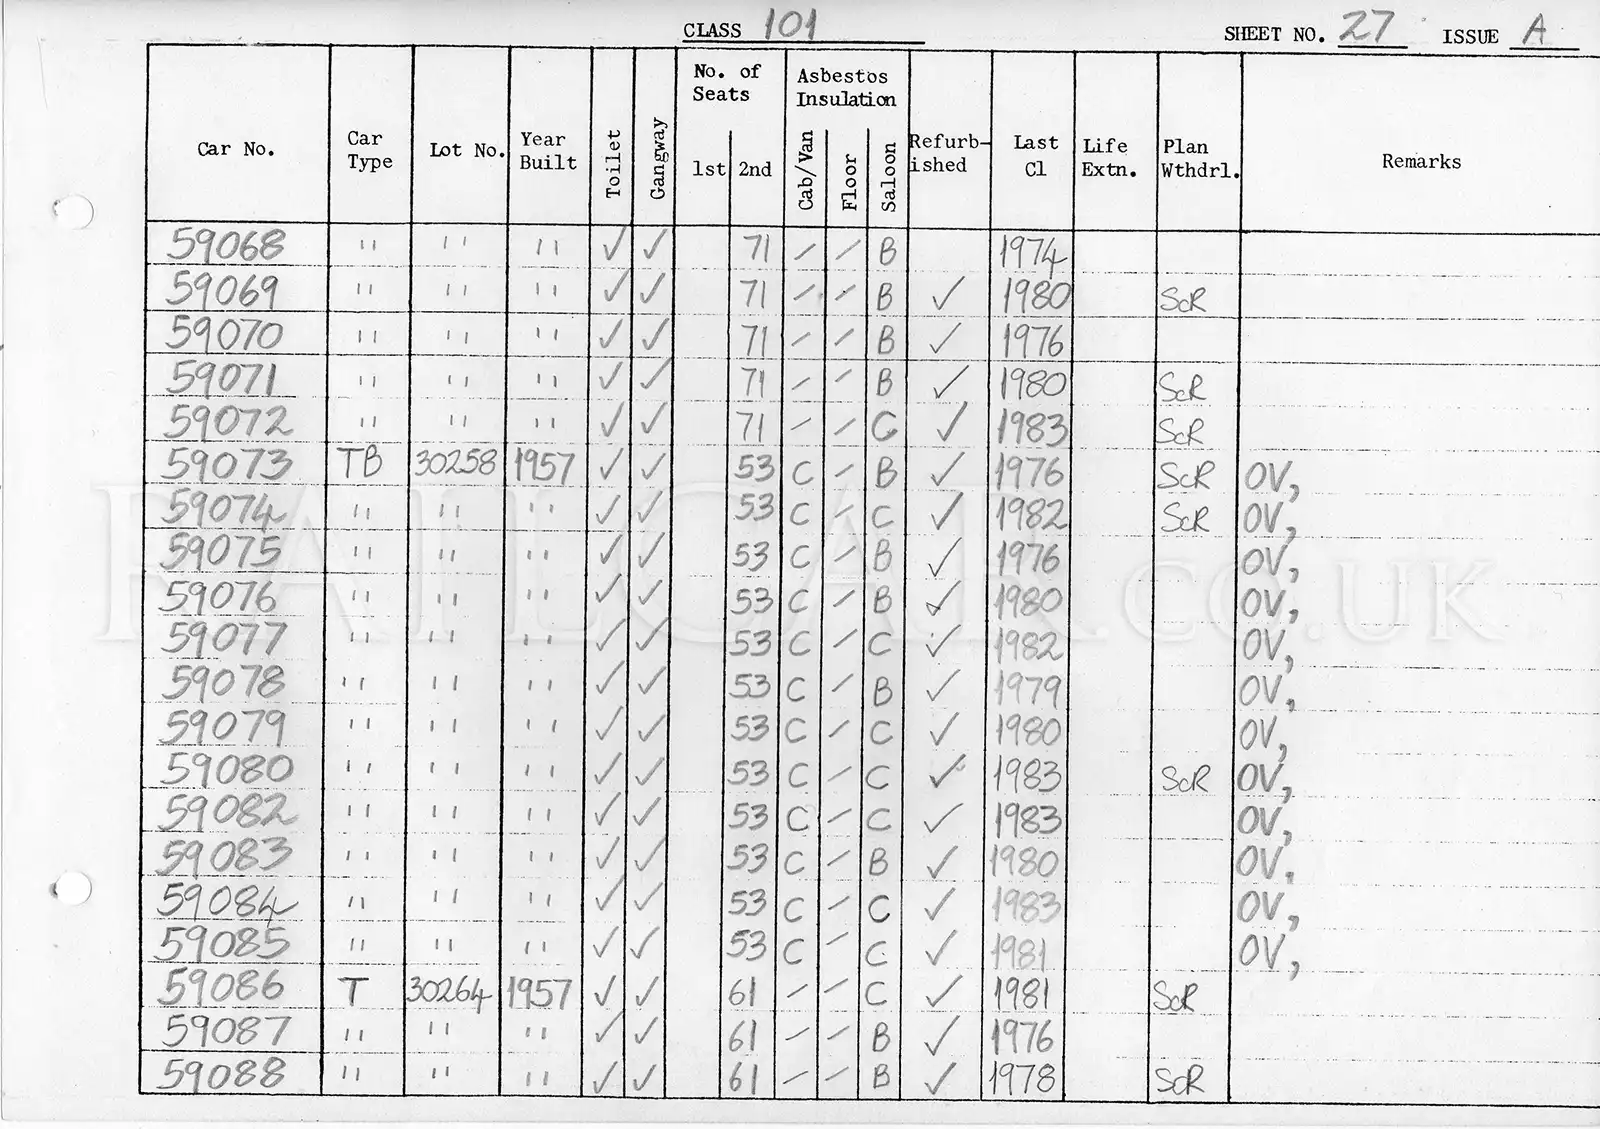 CLASS 101 SHEET NO. 27 ISSUE A
Car No. Car Type Lot No. Year Built Toilet Gangway No. of Seats 1st 2nd Asbestos Insulation Cab/Van Floor Saloon Refurb-ished Last Cl Life Extn. Plan Wthdrl. Remarks
59068 " " " ✓ ✓ 71 - - B 1974
59069 " " " ✓ ✓ 71 - - B ✓ 1980 ScR
59070 " " " ✓ ✓ 71 - - B ✓ 1976
59071 " " " ✓ ✓ 71 - - B ✓ 1980 ScR
59072 " " " ✓ ✓ 71 - - C ✓ 1983 ScR
59073 TB 30258 1957 ✓ ✓ 53 C - B ✓ 1976 ScR OV,
59074 " " " ✓ ✓ 53 C - C ✓ 1982 ScR OV,
59075 " " " ✓ ✓ 53 C - B ✓ 1976 OV,
59076 " " " ✓ ✓ 53 C - B ✓ 1980 OV,
59077 " " " ✓ ✓ 53 C - C ✓ 1982 OV,
59078 " " " ✓ ✓ 53 C - B ✓ 1979 OV,
59079 " " " ✓ ✓ 53 C - C ✓ 1980 OV,
59080 " " " ✓ ✓ 53 C - C ✓ 1983 ScR OV,
59082 " " " ✓ ✓ 53 C - C ✓ 1983 OV,
59083 " " " ✓ ✓ 53 C - B ✓ 1980 OV.
59084 " " " ✓ ✓ 53 C - C ✓ 1983 OV,
59085 " " " ✓ ✓ 53 C - C ✓ 1981 OV,
59086 T 30264 1957 ✓ ✓ 61 - - C ✓ 1981 ScR
59087 " " " ✓ ✓ 61 - - B ✓ 1976
59088 " " " ✓ ✓ 61 - - B ✓ 1978 ScR
RAILCAR.CO.UK